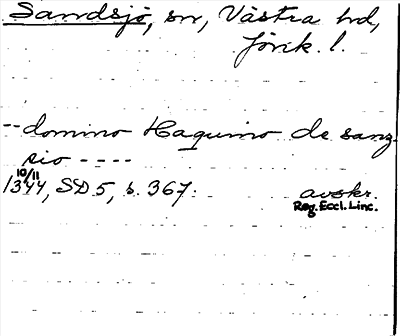 Sandsjö, sn, Västra hd,
Jönk. l.
-- domino Haquino de sanz-
sio ----
10/11
1344, SD 5, s. 367. avskr.
Reg. Eccl. Linc.